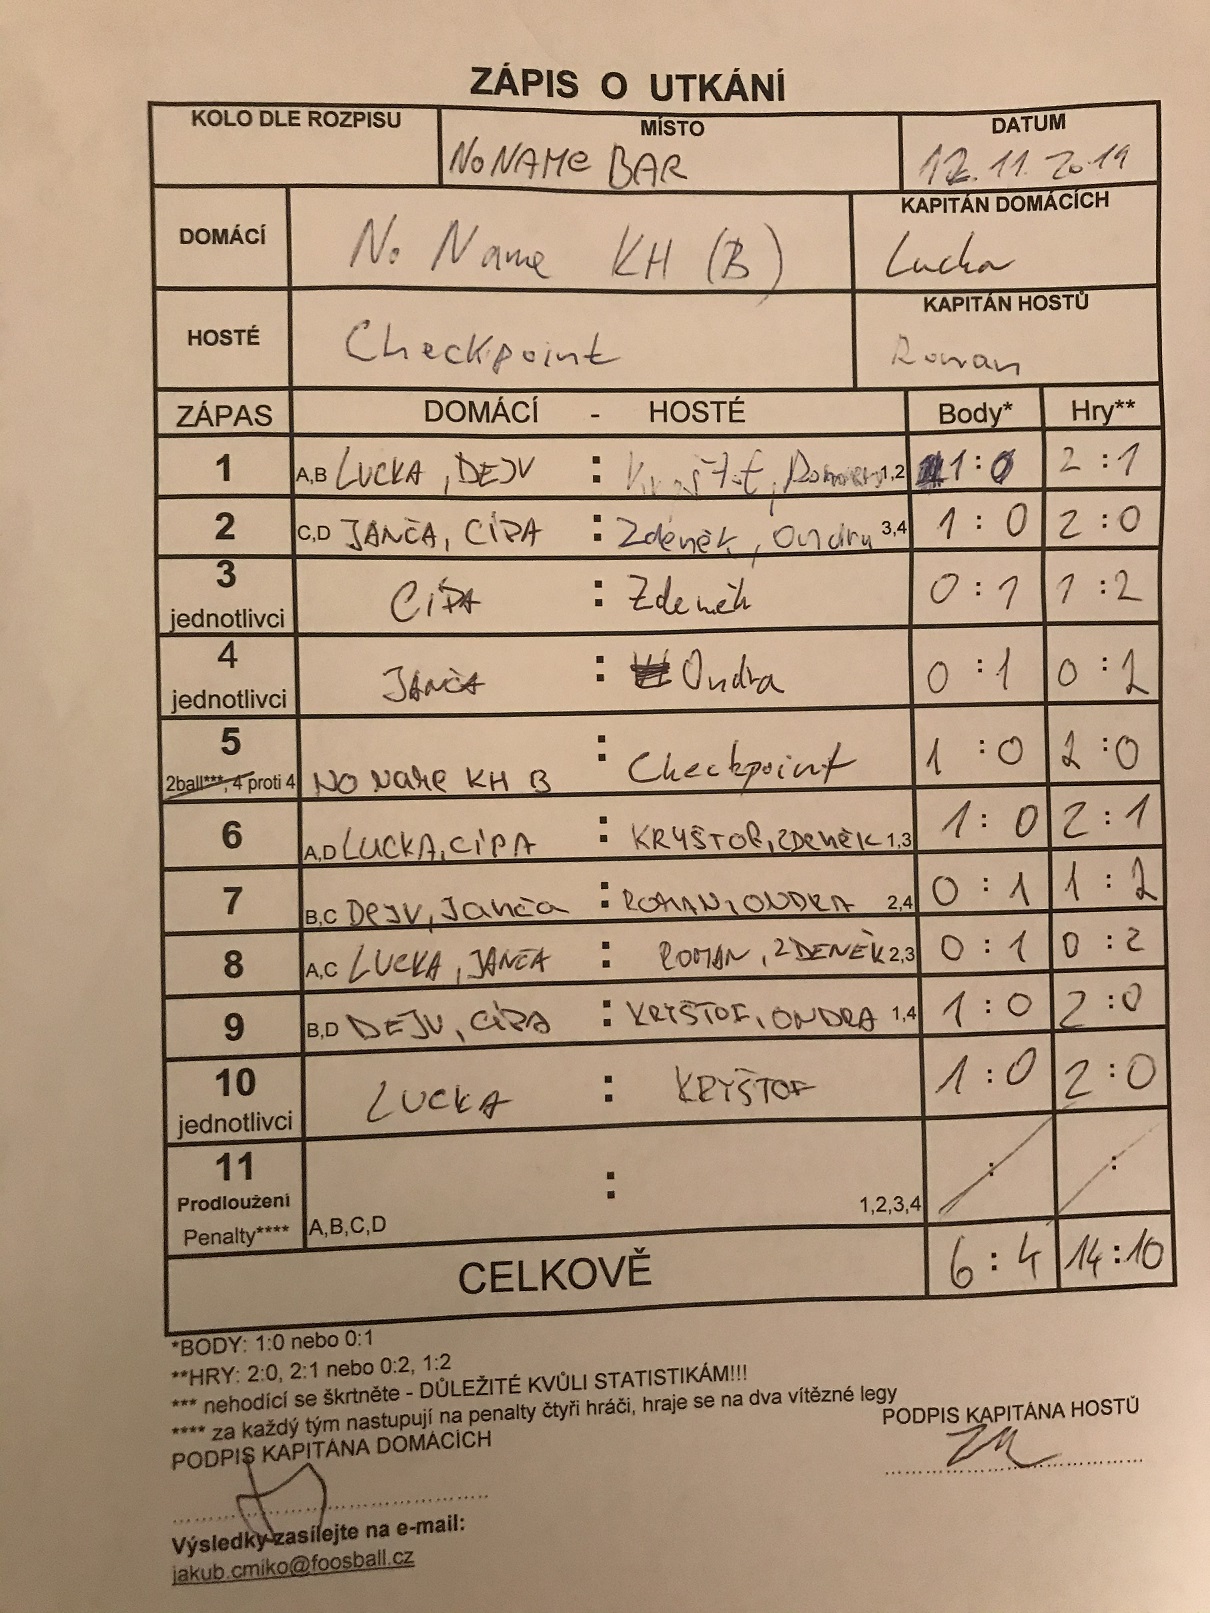 ZÁPIS O UTKÁNÍ
KOLO DLE ROZPISU MÍSTO DATUM
NoNAMe BAR 12.11.2019
DOMÁCÍ No Name KH (B) KAPITÁN DOMÁCÍCH
Lucka
HOSTÉ Checkpoint KAPITÁN HOSTŮ
Roman
ZÁPAS DOMÁCÍ - HOSTÉ Body* Hry**
1 A,B LUCKA, DEJV : Kryštof, Roman 1,2 1:0 2:1
2 C,D JANČA, CÍPA : Zdeněk, Ondra 3,4 1:0 2:0
3 jednotlivci CÍPA : Zdeněk 0:1 1:2
4 jednotlivci JANČA : Ondra 0:1 0:2
5 : 1:0 2:0
2ball***, 4 proti 4 NO NAMe KH B Checkpoint
6 A,D LUCKA, CÍPA : KRYŠTOF, ZDeNĚK 1,3 1:0 2:1
7 B,C DeJV, Janča : ROMAN, ONDRA 2,4 0:1 1:2
8 A,C LUCKA, JANČA : ROMAN, ZDENĚK 2,3 0:1 0:2
9 B,D DEJV, CÍPA : KRYŠTOF, ONDRA 1,4 1:0 2:0
10 jednotlivci LUCKA : KRYŠTOF 1:0 2:0
11 : : :
Prodloužení
Penalty**** A,B,C,D 1,2,3,4
CELKOVĚ 6:4 14:10
*BODY: 1:0 nebo 0:1
**HRY: 2:0, 2:1 nebo 0:2, 1:2
*** nehodící se škrtněte - DŮLEŽITÉ KVŮLI STATISTIKÁM!!!
**** za každý tým nastupují na penalty čtyři hráči, hraje se na dva vítězné legy
PODPIS KAPITÁNA DOMÁCÍCH PODPIS KAPITÁNA HOSTŮ
Výsledky zasílejte na e-mail:
jakub.cmiko@foosball.cz